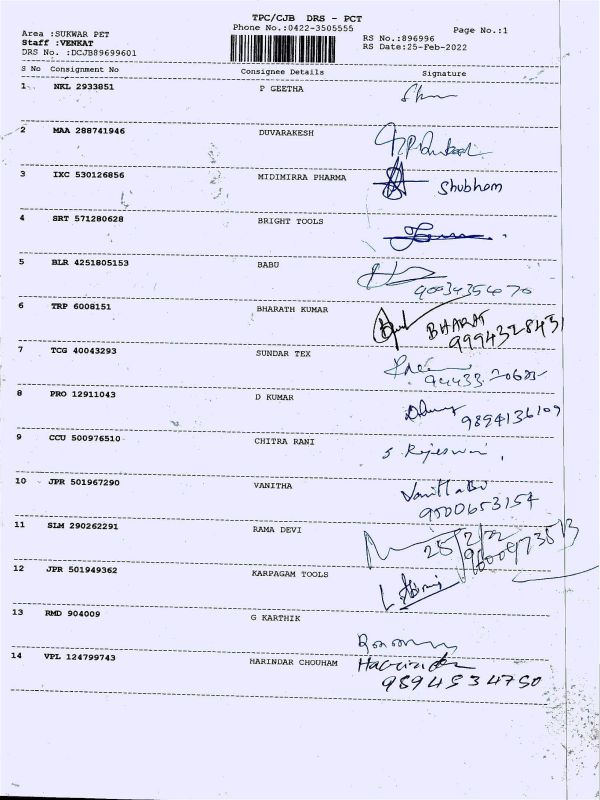 TPC/CJB DRS - PCT
Phone No.:0422-3505555
Page No.:1
Area :SUKWAR PET
RS No.:896996
Staff :VENKAT
RS Date:25-Feb-2022
DRS No. :DCJB89699601
S No Consignment No Consignee Details Signature
1 NKL 2933851 P GEETHA
2 MAA 288741946 DUVARAKESH
3 IXC 530126856 MIDIMIRRA PHARMA Shubham
4 SRT 571280628 BRIGHT TOOLS
5 BLR 4251805153 BABU
6 TRP 6008151 BHARATH KUMAR BHARAT
9994328431
7 TCG 40043293 SUNDAR TEX
8 PRO 12911043 D KUMAR
9894136109
9 CCU 500976510 CHITRA RANI S. Rajeswari
10 JPR 501967290 VANITHA
9500653154
11 SLM 290262291 RAMA DEVI 25/2/22
12 JPR 501949362 KARPAGAM TOOLS
13 RMD 904009 G KARTHIK
14 VPL 124799743 HARINDAR CHOUHAM
9894534750